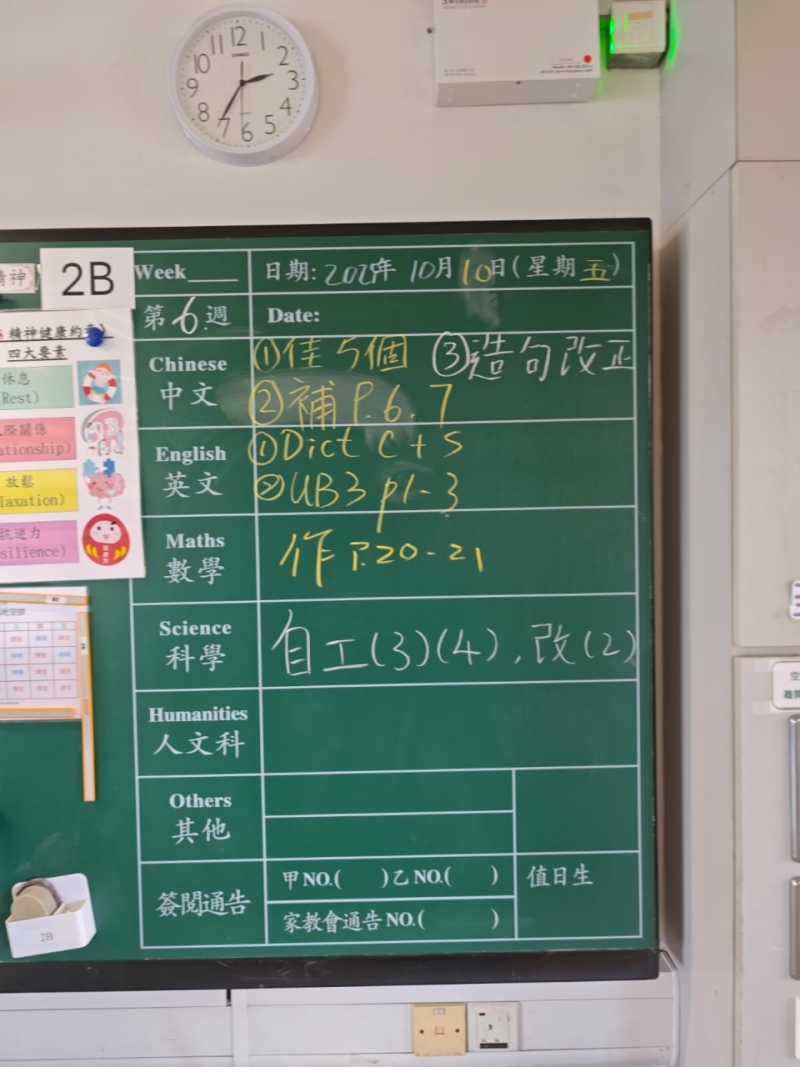 12
1
2
3
4
5
6
7
8
9
10
11
CASIO
2B
Week____ 日期: 2025年 10月 10日(星期五)
第6週 Date:
Chinese 中文
①佳5個 ③造句改正
②補 P.6.7
English 英文
①Dict C+S
②UB3 p1-3
Maths 數學
作 P.20-21
Science 科學
自工(3)(4),改(2)
Humanities 人文科
Others 其他
簽閱通告
甲NO.( )乙NO.( )
家教會通告NO.( )
值日生
精神
精神健康約章
四大要素
休息
Rest)
際關係
ationship)
放鬆
laxation)
抗逆力
silience)
2B